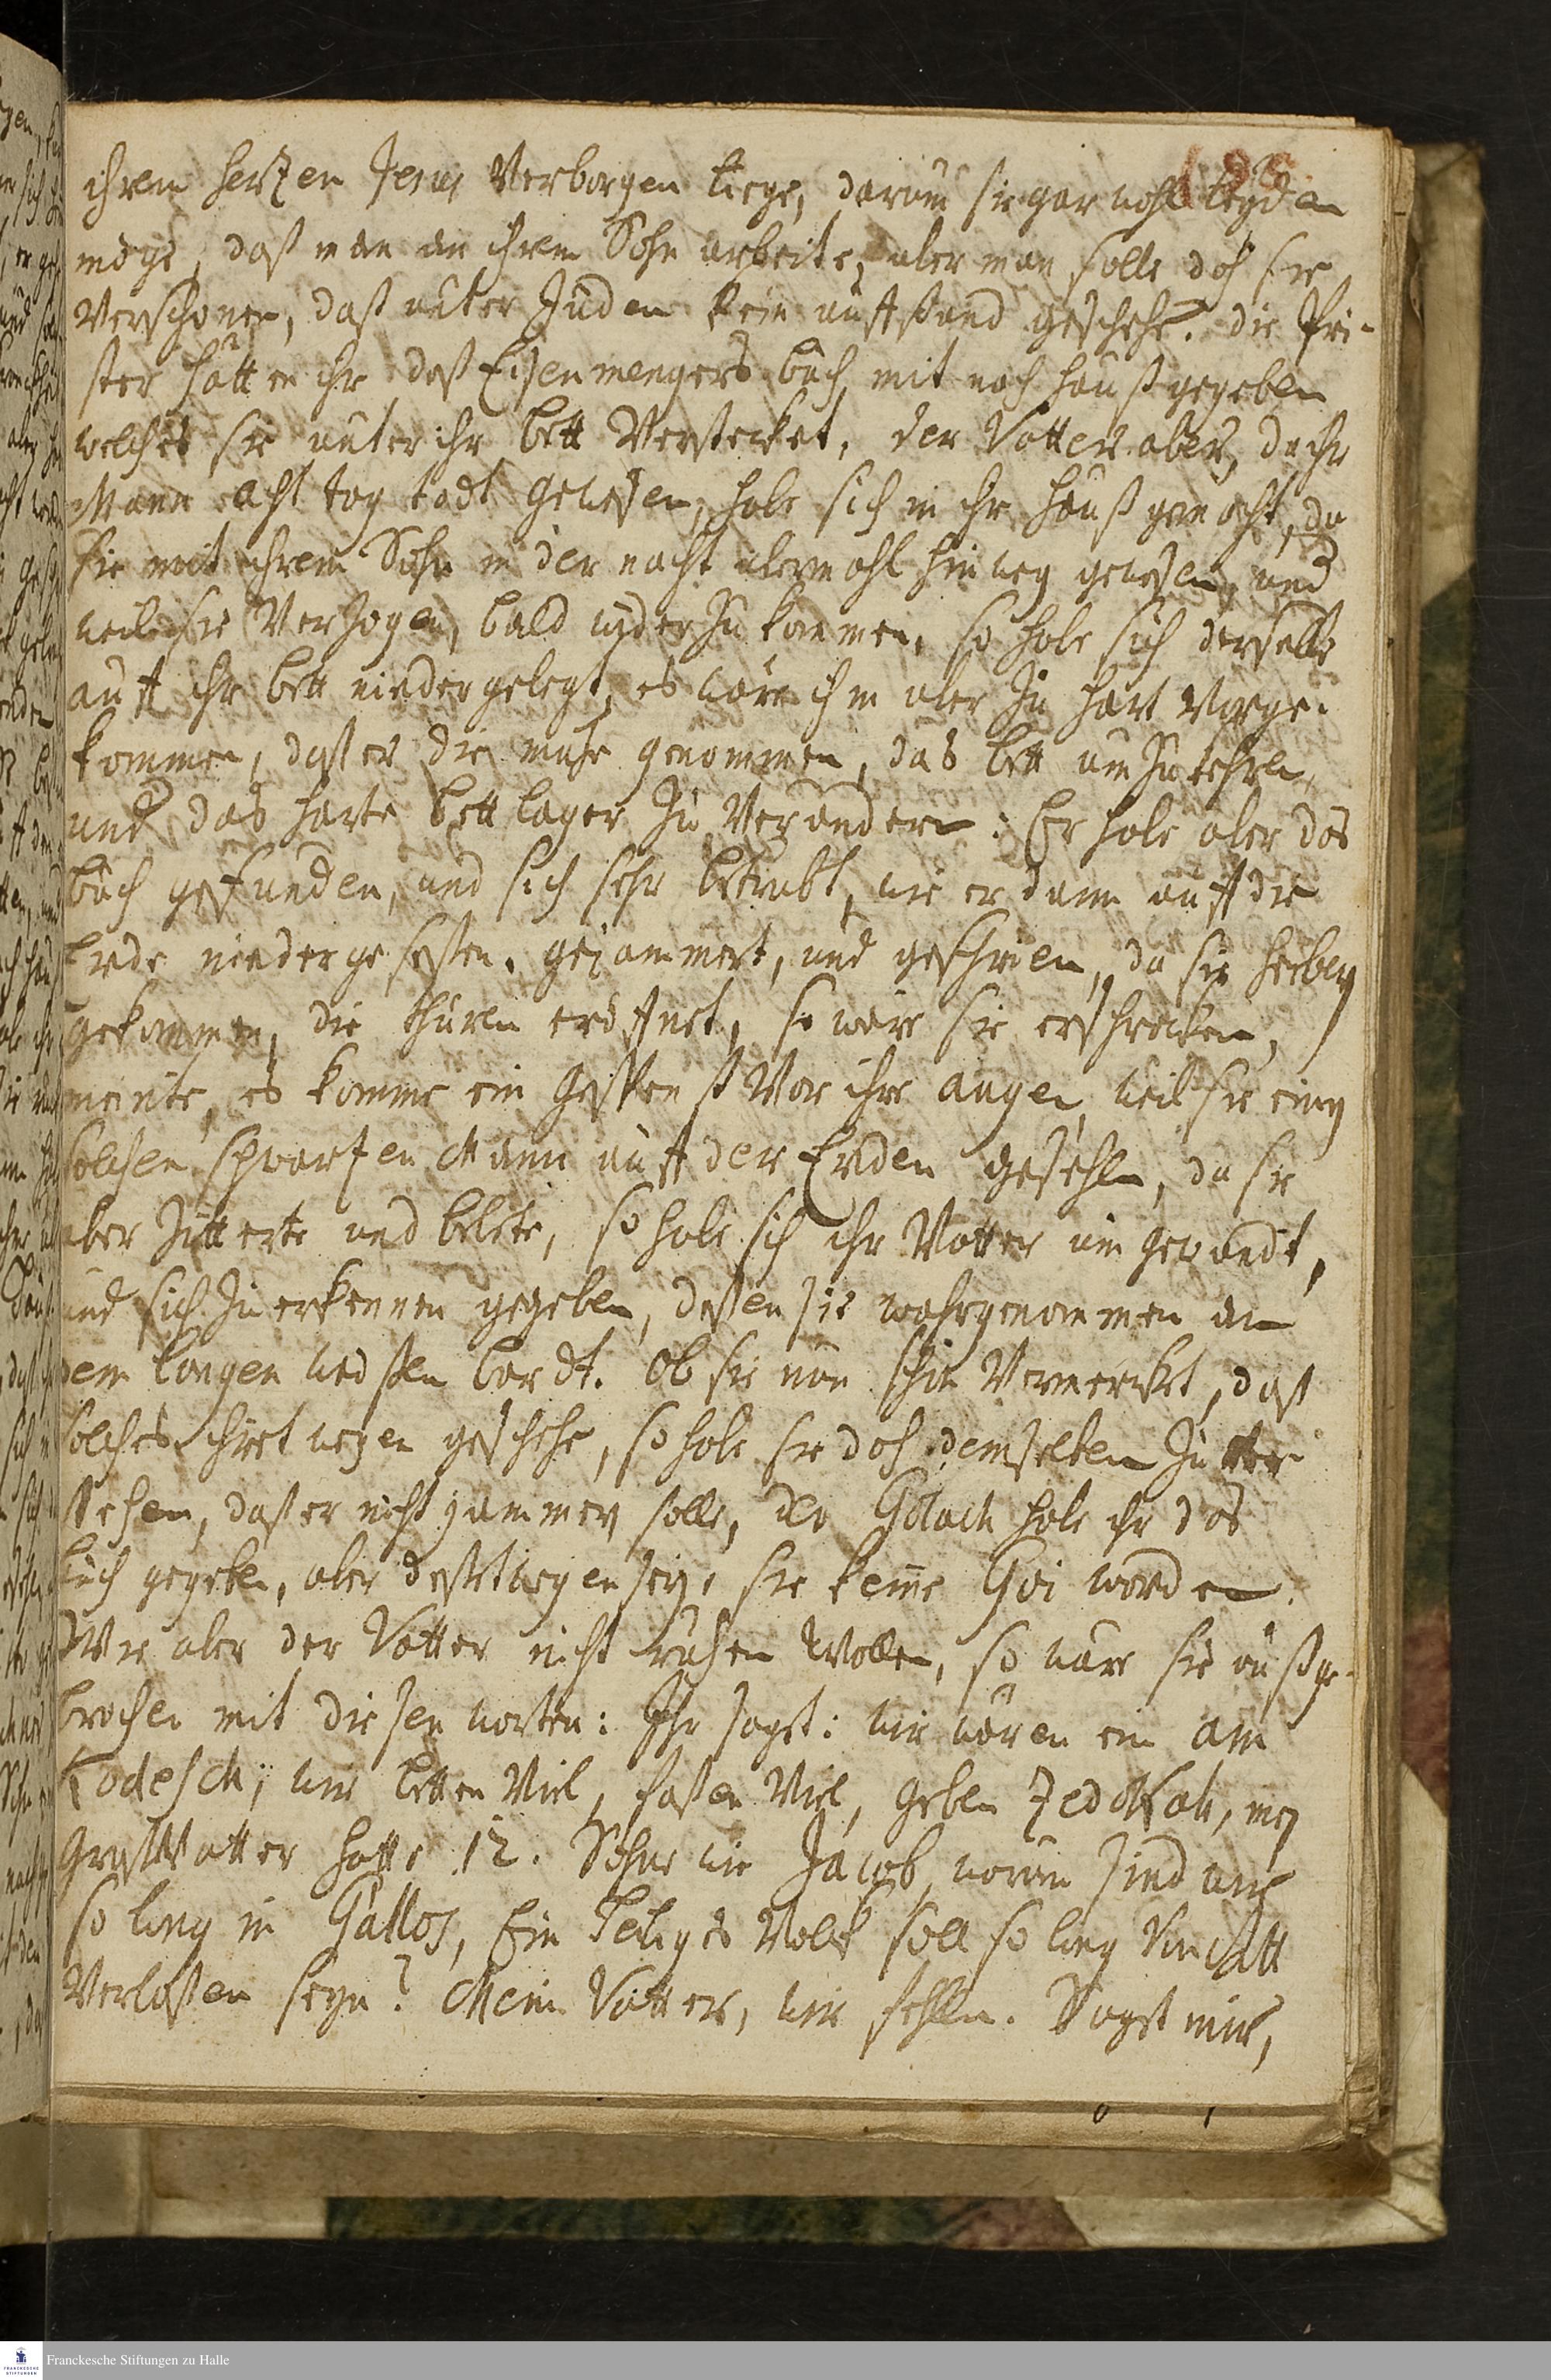 ihrem herzen Jesus Verborgen liege, darum sie gar wohl leyden
möge, daß man an ihrem Sohn arbeite, aber man solle doch sie
Verschonen, daß unter Juden kein auffstand geschehe. die Pri-
ster hätten ihr daß Eisenmengers buch mit nach hauß gegeben
welches sie unter ihr bett Verstecket, der Vatter aber, da ihr
Mann acht tag todt gewesen, habe sich in ihr hauß gemacht, da
sie mit ihrem Sohn in der nacht abermahl hinweg gewesen, und
weil sie Verzogen, bald wider zu kommen, so habe sich derselbe
auff ihr bett nieder gelegt, es wäre ihm aber zu hart Vorge-
kommen, daß er die muhe genommen, das bett umzukehren,
und das harte bettlager zu Verändern: Er habe aber das
buch gefunden, und sich sehr betrubt, wie er dann auff die
Erde nieder gesessen, gejammert, und geschrien, da sie herbey
gekommen, die thüren eröffnet, so wäre sie erschrocken,
meinte, es komme ein Gespenst Vor ihre augen, weil sie einen
solchen schwarzen Mann auff der Erden gesehen, da sie
aber zitterte und bebete, so habe sich ihr Vatter umgewandt,
und sich zu erkennen gegeben, deßen sie wahrgenommen an
dem langen weißen bardt. Ob sie nun schon Vermerckt, daß
solches ihret wegen geschehe, so habe sie doch demselben zu Ver
stehen, daß er nicht jammern solle, der Gallach habe ihr das
buch gegeben, aber deßtwegen seye sie keine Goi worden.
Wie aber der Vatter nicht ruhen wollen, so wäre sie außge-
brochen mit diesen worten: Ihr sagt: wir wären ein am
Kodesch, wir betten Viel, fasten Viel, geben Zedakah, mein
GroßVatter hatte 12. Söhne wie Jacob, warum sind wir
so lang in Gallos, Ein heiliges Volck soll so lang Von Gott
Verlaßen seyn? Mein Vatter, wir fehlen. Sagt mir,
Franckesche Stiftungen zu Halle